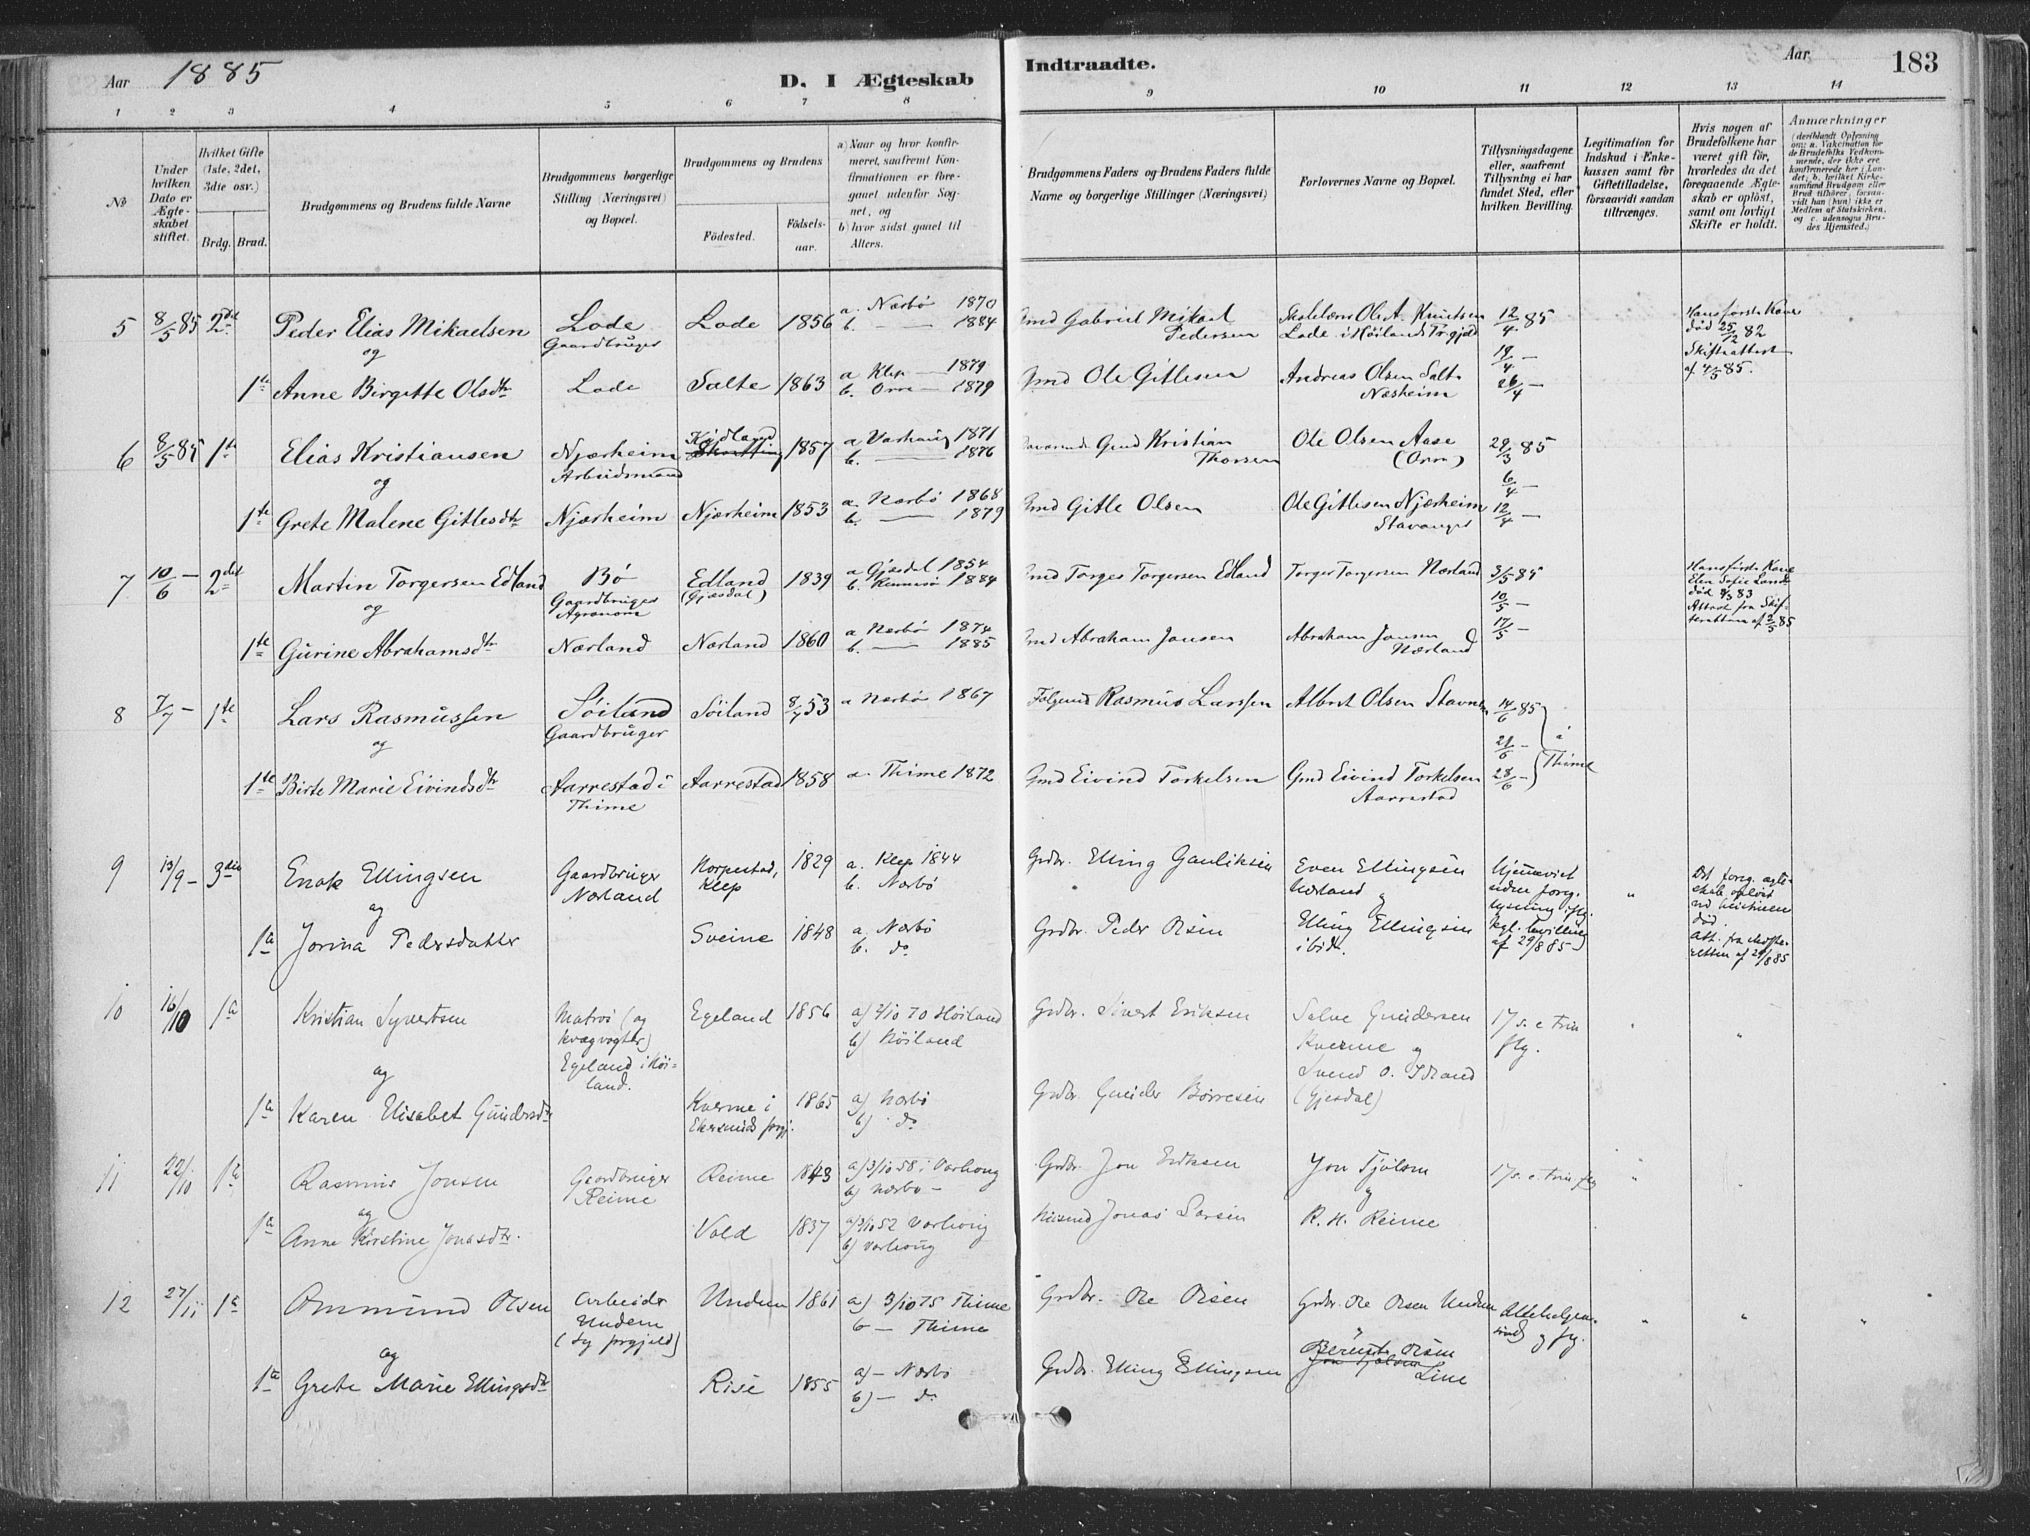 Aar 1885
D. I Ægteskab
Indtraadte.
Aar
183
1 2 3 4 5 6 7 8 9 10 11 12 13 14
No
Under hvilken Dato er Ægteskabet stiftet.
Hvilket Gifte (1ste, 2det, 3die osv.)
Brdg. Brud.
Brudgommens og Brudens fulde Navne
Brudgommens borgerlige Stilling (Næringsvei) og Bopæl.
Brudgommens og Brudens
Fødested.
Fødselsaar.
a) Naar og hvor konfirmeret, saafremt Konfirmationen er foregaaet udenfor Sognet, og
b) hvor sidst gaaet til Alters.
Brudgommens Faders og Brudens Faders fulde Navne og borgerlige Stillinger (Næringsvei)
Forlovernes Navne og Bopæl.
Tillysningsdagene eller, saafremt Tillysning ei har fundet Sted, efter hvilken Bevilling.
Legitimation for Indskud i Enkekassen samt for Giftetilladelse, forsaavidt saadan tiltrænges.
Hvis nogen af Brudefolkene har været gift før, hvorledes da det foregaaende Ægteskab er opløst, samt om lovligt Skifte er holdt.
Anmærkninger
5 8/5 85 2det Peder Elias Mikaelsen Lode Gaardbruger Lode 1856 a. Nærbø 1870 b. — 1884 Gmd Gabriel Mikael Pedersen Skolelærer Ole A. Knudsen Lode i Høilands Prgjeld 12/4 85 Hans første Kone død 25/12 82 Skifteattest af 4/5 85.
og
1te Anne Birgitte Olsdtr Lode Salte 1863 a Klep — 1879 b. Orre — 1879 Gmd Ole Gitlesen Andreas Olsen Salte Næsheim 19/4 — 26/4 —
6 8/5 85 1te Elias Kristiansen Njærheim Arbeidsmand 1857 a Varhaug 1871 b. — 1876 Gmd Kristian Thorsen Ole Olsen Aase (Orre) 29/3 85
og
6/4 —
1te Grete Malene Gitlesdtr Njærheim Njærheim 1853 a. Nærbø 1868 b. — 1879 Gmd Gitle Olsen Ole Gitlesen Njærheim Stavanger 12/4 —
7 10/6 — 2det Martin Torgersen Edland Bø Gaardbruger Agronom Edland (Gjæsdal) 1839 a Gjæsdal 1854 b. 1884 Gmd Torger Torgersen Edland Torger Torgersen Nærland 3/5 85 Hans første Kone Elen Sofie død 83 Attest fra Skifteretten af 2/5 85
og
10/5 —
1te Gurine Abrahamsdtr Nærland Nærland 1860 a Nærbø 1874 b. — 1885 Gmd Abraham Jansen Abraham Jansen Nærland 17/5 —
8 7/7 — 1te Lars Rasmussen Søiland Gaardbruger Søiland 8/7 53 a Nærbø 1867 Rasmus Larssen Albret Olsen 14/6 85
og
21/6 — i Thime
1te Birte Marie Eivindsdtr Aarrestad i Thime Aarrestad 1858 a. Thime 1872 Gmd Eivind Torkelsen Gmd Eivind Torkelsen Aarrestad 28/6 —
9 13/9 — 3die Enok Ellingsen Gaardbruger Nærland Norpestad, Klep 1829 a. Klep 1844 b. Nærbø Grdbr. Elling Gauliksen Even Ellingsen Nærland og Hjemmeviet uden foreg. lysning iflg. kgl. bevilling af 29/8 85 " Det foreg. ægteskab opløst ved hustruens død. Att. fra skifteretten af 29/8 85
og
1te Jorina Pedersdatter Sveine 1848 a. Nærbø b. do Grdbr. Peder Olsen Elling Ellingsen ibid.
10 16/10 1te Kristian Syvertsen Matros (og kvægvogter) Egeland i Høiland. Egeland 1856 a) 2/10 70 Høiland b) Høiland Grdbr. Sivert Eriksen Salve Gundersen Kverme og Svend O. (Gjesdal) 17 s. e Trin flg. " "
og
1te Karen Elisabet Gundersdtr Kverme i Ekersunds prgj. 1865 a) Nærbø b) do Grdbr. Gunder Børresen
11 22/10 1te Rasmus Jonsen Gaardbruger Reime Reime 1843 a) 3/10 58 i Varhoug b) Nærbø — Grdbr. Jon Eriksen Jon Tjølsen 17 s. e. Trin flg " "
og
1te Anne Kirstine Jonasdtr. Vold 1837 a) 3/10 52 Varhoug b) Varhoug Jonas Larsen og R. H. Reime
12 27/11 1te Ommund Olsen Arbeider Undem (Ly prgjeld) Undem 1861 a) 3/10 75 Thime b — Thime Grdbr. Ole Olsen Grdbr. Ole Olsen Undem Allehelgens flg. " " "
og
1te Grete Marie Ellingsdtr Rise 1855 a) — Nærbø b) — do Grdbr. Elling Ellingsen Berent Olsen Line